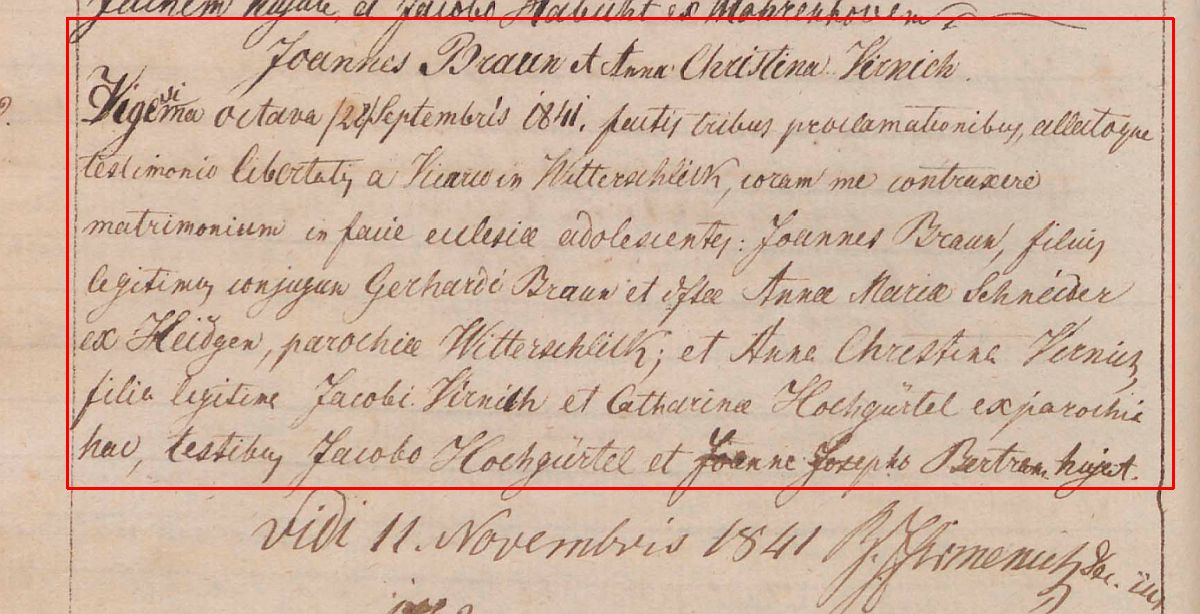 hujate, et Jacobo Habicht ex Mohrenhoven
Joannes Braun et Anna Christina Virnich.
Vigesima octava /28/ Septembris 1841. factis tribus proclamationibus, allatoque
testimonio libertatis a Vicario in Witterschlick, coram me contraxere
matrimonium in facie ecclesiæ adolescentes: Joannes Braun, filius
legitimus conjugum Gerhardi Braun et Annæ Mariæ Schneider
ex Heidgen, parochiæ Witterschlick; et Anna Christina Virnich,
filia legitima Jacobi Virnich et Catharinæ Hochgürtel ex parochia
hac, testibus Jacobo Hochgürtel et Josepho Bertram hujat.
Vidi 11. Novembris 1841